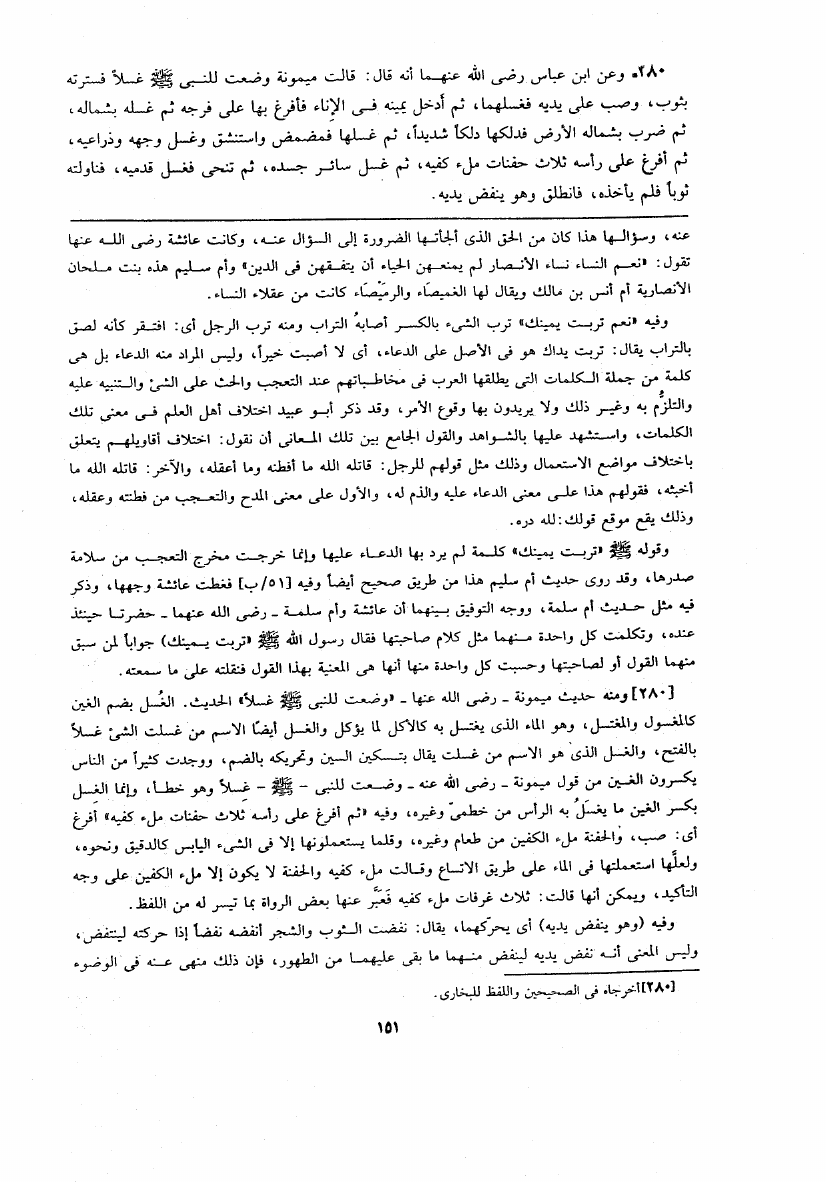 ٢٨٠ـ وعن ابن عباس رضى الله عنهـما أنه قال: قالت ميمونة وضعت للنـبى ﷺ غسلاً فسترته
بثوب، وصب على يديه فغسلهما، ثم أدخل يمينه فـى الإناء فأفرغ بها على فرجه ثم غسله بشماله،
ثم ضرب بشماله الأرض فدلكها دلكاً شديداً، ثم غسلها فمضمض واستنشق وغسل وجهه وذراعيه،
ثم أفرغ على رأسه ثلاث حفنات ملء كفيه، ثم غسل سائـر جسده، ثم تنحى فغسل قدميه، فناولته
ثوباً فلم يأخذه، فانطلق وهو ينفض يديه.
عنه، وسؤالـها هذا كان من الحق الذى ألجأتـها الضرورة إلى السؤال عنـه، وكانت عائشة رضى اللـه عنها
تقول: «نعـم النساء نساء الأنـصار لم يمنعـهن الحياء أن يتفـقهن فى الدين» وأم سـليم هذه بنت مـلحان
الأنصارية أم أنس بن مالك ويقال لها الغميصَاء والرميَصَاء كانت من عقلاء النساء.
وفيه «نعم تربـت يمينك» ترب الشىء بالكسـر أصابهُ التراب ومنه ترب الرجل أى: افتـقر كأنه لصق
بالتراب يقال: تربت يداك هو فى الأصل على الدعاء، أى لا أصبت خيراً، وليس المراد منه الدعاء بل هى
كلمة من جملة الكلمات التى يطلقها العرب فى مخاطـباتهم عند التعجب والحث على الشئ والـتنبيه عليه
والتلزُّم به وغيـر ذلك ولا يريدون بها وقوع الأمر، وقد ذكر أبـو عبيد اختلاف أهل العلم فـى معنى تلك
الكلمات، واسـتشهد عليها بالشـواهد والقول الجامع بين تلك المـعانى أن نقول: اختلاف أقاويلهـم يتعلق
باختلاف مواضع الاستعمال وذلك مثل قولهم للرجل: قاتله الله ما أفطنه وما أعقله، والآخر: قاتله الله ما
أخبثه، فقولهم هذا علـى معنى الدعاء عليه والذم له، والأول على معنى المدح والتعـجب من فطنته وعقله،
وذلك يقع موقع قولك:لله دره.
وقوله ﷺ «تربـت يمينك» كلـمة لم يرد بها الدعـاء عليها وإنما خرجـت مخرج التعجـب من سلامة
صدرها، وقد روى حديث أم سليم هذا من طريق صحيح أيضاً وفيه [٥١/ب] فغطت عائشة وجهها، وذكر
فيه مثل حـديث أم سلمة، ووجه التوفيق بـينهما أن عائشة وأم سلمـة ـ رضى الله عنهما ـ حضرتـا حينئذ
عنده، وتكلمت كل واحدة مـنهما مثل كلام صاحبتها فقال رسول الله ﷺ «تربت يـمينك) جواباً لمن سبق
منهما القول أو لصاحبتها وحسبت كل واحدة منها أنها هى المعنية بهذا القول فنقلته على ما سمعته.
[٢٨٠] ومنه حديث ميمونة ـ رضى الله عنها ـ «وضعت للنبى ﷺ غسلاً» الحديث. الغُسل بضم الغين
كالمغسول والمغتسل، وهو الماء الذى يغتسل به كالأكل لما يؤكل والغسل أيضًا الاسم من غسلت الشئ غسلاً
بالفتح، والغسل الذى هو الاسم من غسلت يقال بتـسكين السين وتحريكه بالضم، ووجدت كثيراً من الناس
يكسرون الغـين من قول ميمونة ـ رضى الله عنه ـ وضـعت للنبى - ﷺ - غِسلاً وهو خطـأ، وإنما الغِسل
بكسر الغين ما يغسَلُ به الرأس من خطمىّ وغيره، وفيه «ثم أفرغ على رأسه ثلاث حفنات ملء كفيه» أفرغ
أى: صب، والحفنة ملء الكفين من طعام وغيره، وقلما يستعملونها إلا فى الشىء اليابس كالدقيق ونحوه،
ولعلَّها استعملتها فى الماء على طريق الاتساع وقـالت ملء كفيه والحفنة لا يكون إلا ملء الكفين على وجه
التأكيد، ويمكن أنها قالت: ثلاث غرفات ملء كفيه فَعبَّر عنها بعض الرواة بما تيسر له من اللفظ.
وفيه (وهو ينفض يديه) أى يحرّكهما، يقال: نفضت الـثوب والشجر أنفضه نفضاً إذا حركته لينتفض،
وليس المعنى أنـه نفض يديه لينفض منـهما ما بقى عليهمـا من الطهور، فإن ذلك منهى عـنه فى الوضوء
[٢٨٠]أخرجاه فى الصحيحين واللفظ للبخارى.
١٥١